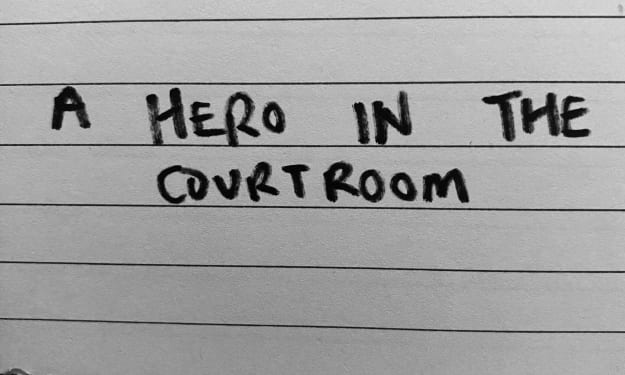 A HERO IN THE
COURTROOM